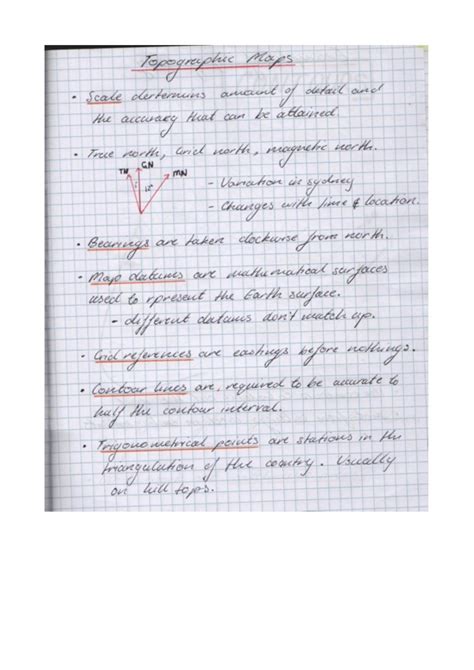 Topographic Maps
• Scale dertermins amount of detail and
the accuracy that can be attained.
• True north, Grid north, magnetic north.
TN GN MN
- Variation in sydney
- Changes with time & location.
• Bearings are taken clockwise from north.
• Map datums are mathmatical surfaces
used to rpresent the Earth surface.
- different datums don't match up.
• Grid references are eastings before nothings.
• Contour lines are required to be accurate to
half the contour interval.
• Trigonometrical points are stations in the
triangulation of the country. Usually
on hill tops.